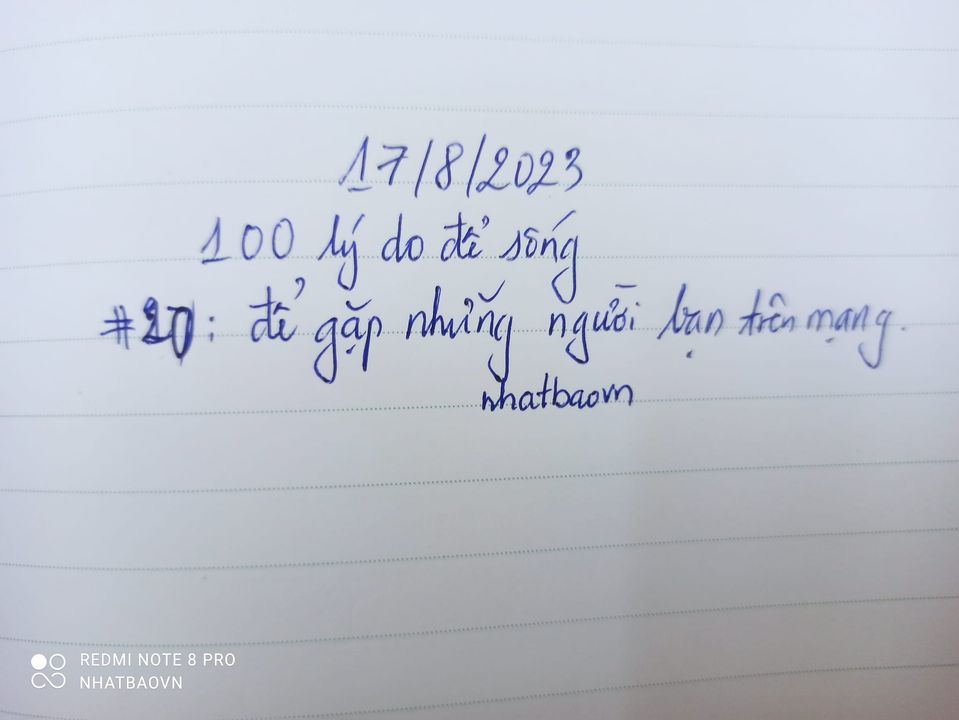 17/8/2023
100 lý do để sống
#20: để gặp những người bạn trên mạng.
nhatbaovn
REDMI NOTE 8 PRO
NHATBAOVN